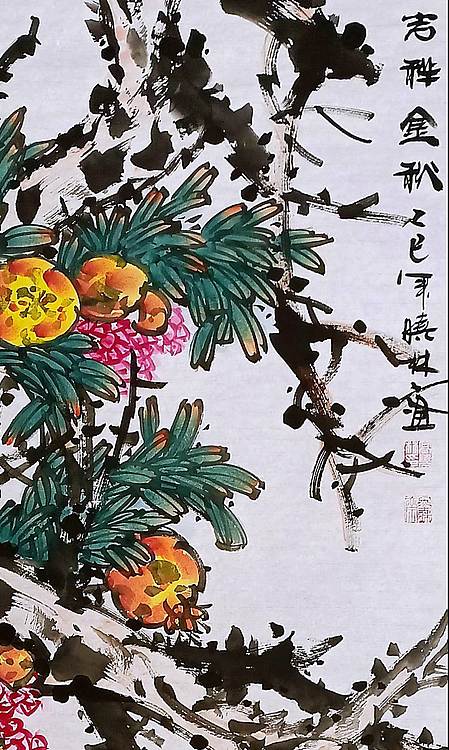 吉祥金秋
乙巳年晓林画